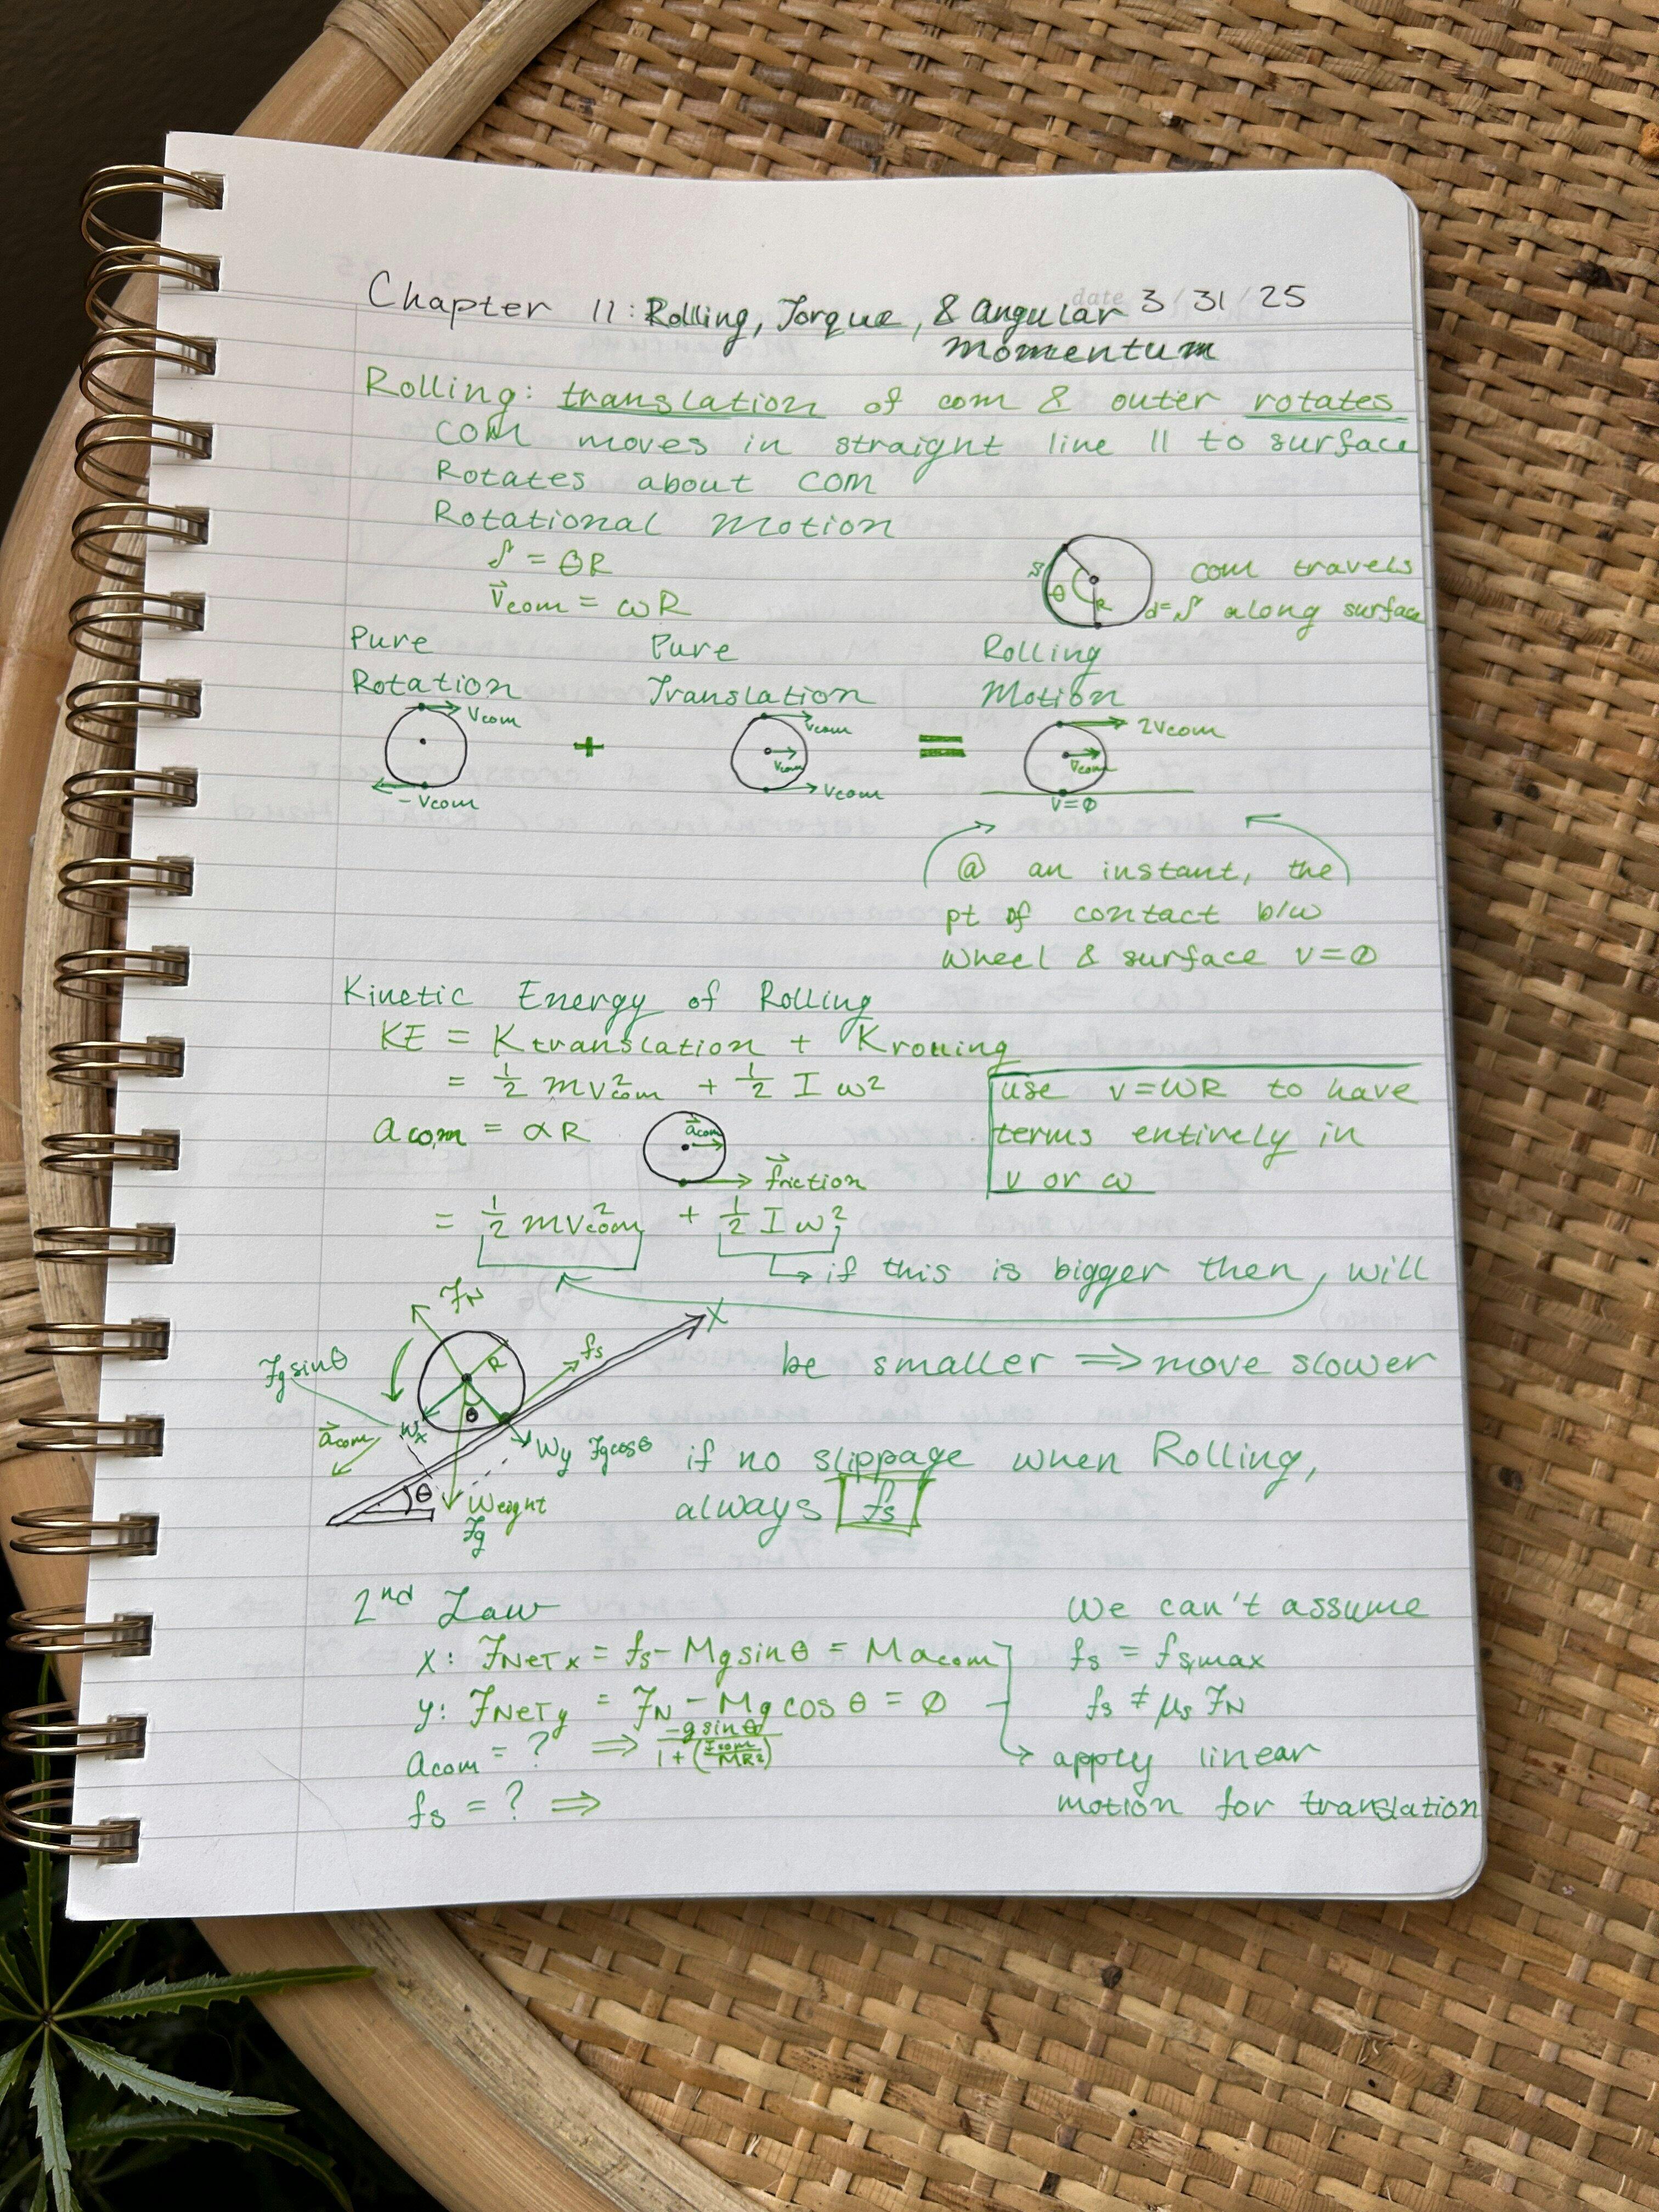 date 3/31/25
Chapter 11: Rolling, Torque, & Angular
Momentum
Rolling: translation of com & outer rotates
COM moves in straight line || to surface
Rotates about com
Rotational Motion
s = θR
v⃗com = ωR
s θ R
com travels
d=s along surface
Pure Rotation
vcom
-vcom
+
Pure Translation
vcom
vcom
vcom
=
Rolling Motion
2vcom
vcom
v=0
@ an instant, the
pt of contact b/w
wheel & surface v=0
Kinetic Energy of Rolling
KE = Ktranslation + Krolling
= 1/2 mv²com + 1/2 I ω²
use v=ωR to have
terms entirely in
v or ω
acom = αR
a⃗com
friction
= 1/2 mv²com + 1/2 I ω²
if this is bigger then, will
be smaller ⟹ move slower
FN
R
fs
x
Fg sinθ
a⃗com
wx
θ
wy Fg cosθ
θ
Weight
Fg
if no slippage when Rolling,
always fs
2nd Law
x: FNET x = fs - Mg sinθ = Macom
y: FNET y = FN - Mg cos θ = 0
acom = ? ⟹ -g sinθ / 1 + (Icom/MR²)
fs = ? ⟹
We can't assume
fs = fs,max
fs ≠ μs FN
apply linear
motion for translation